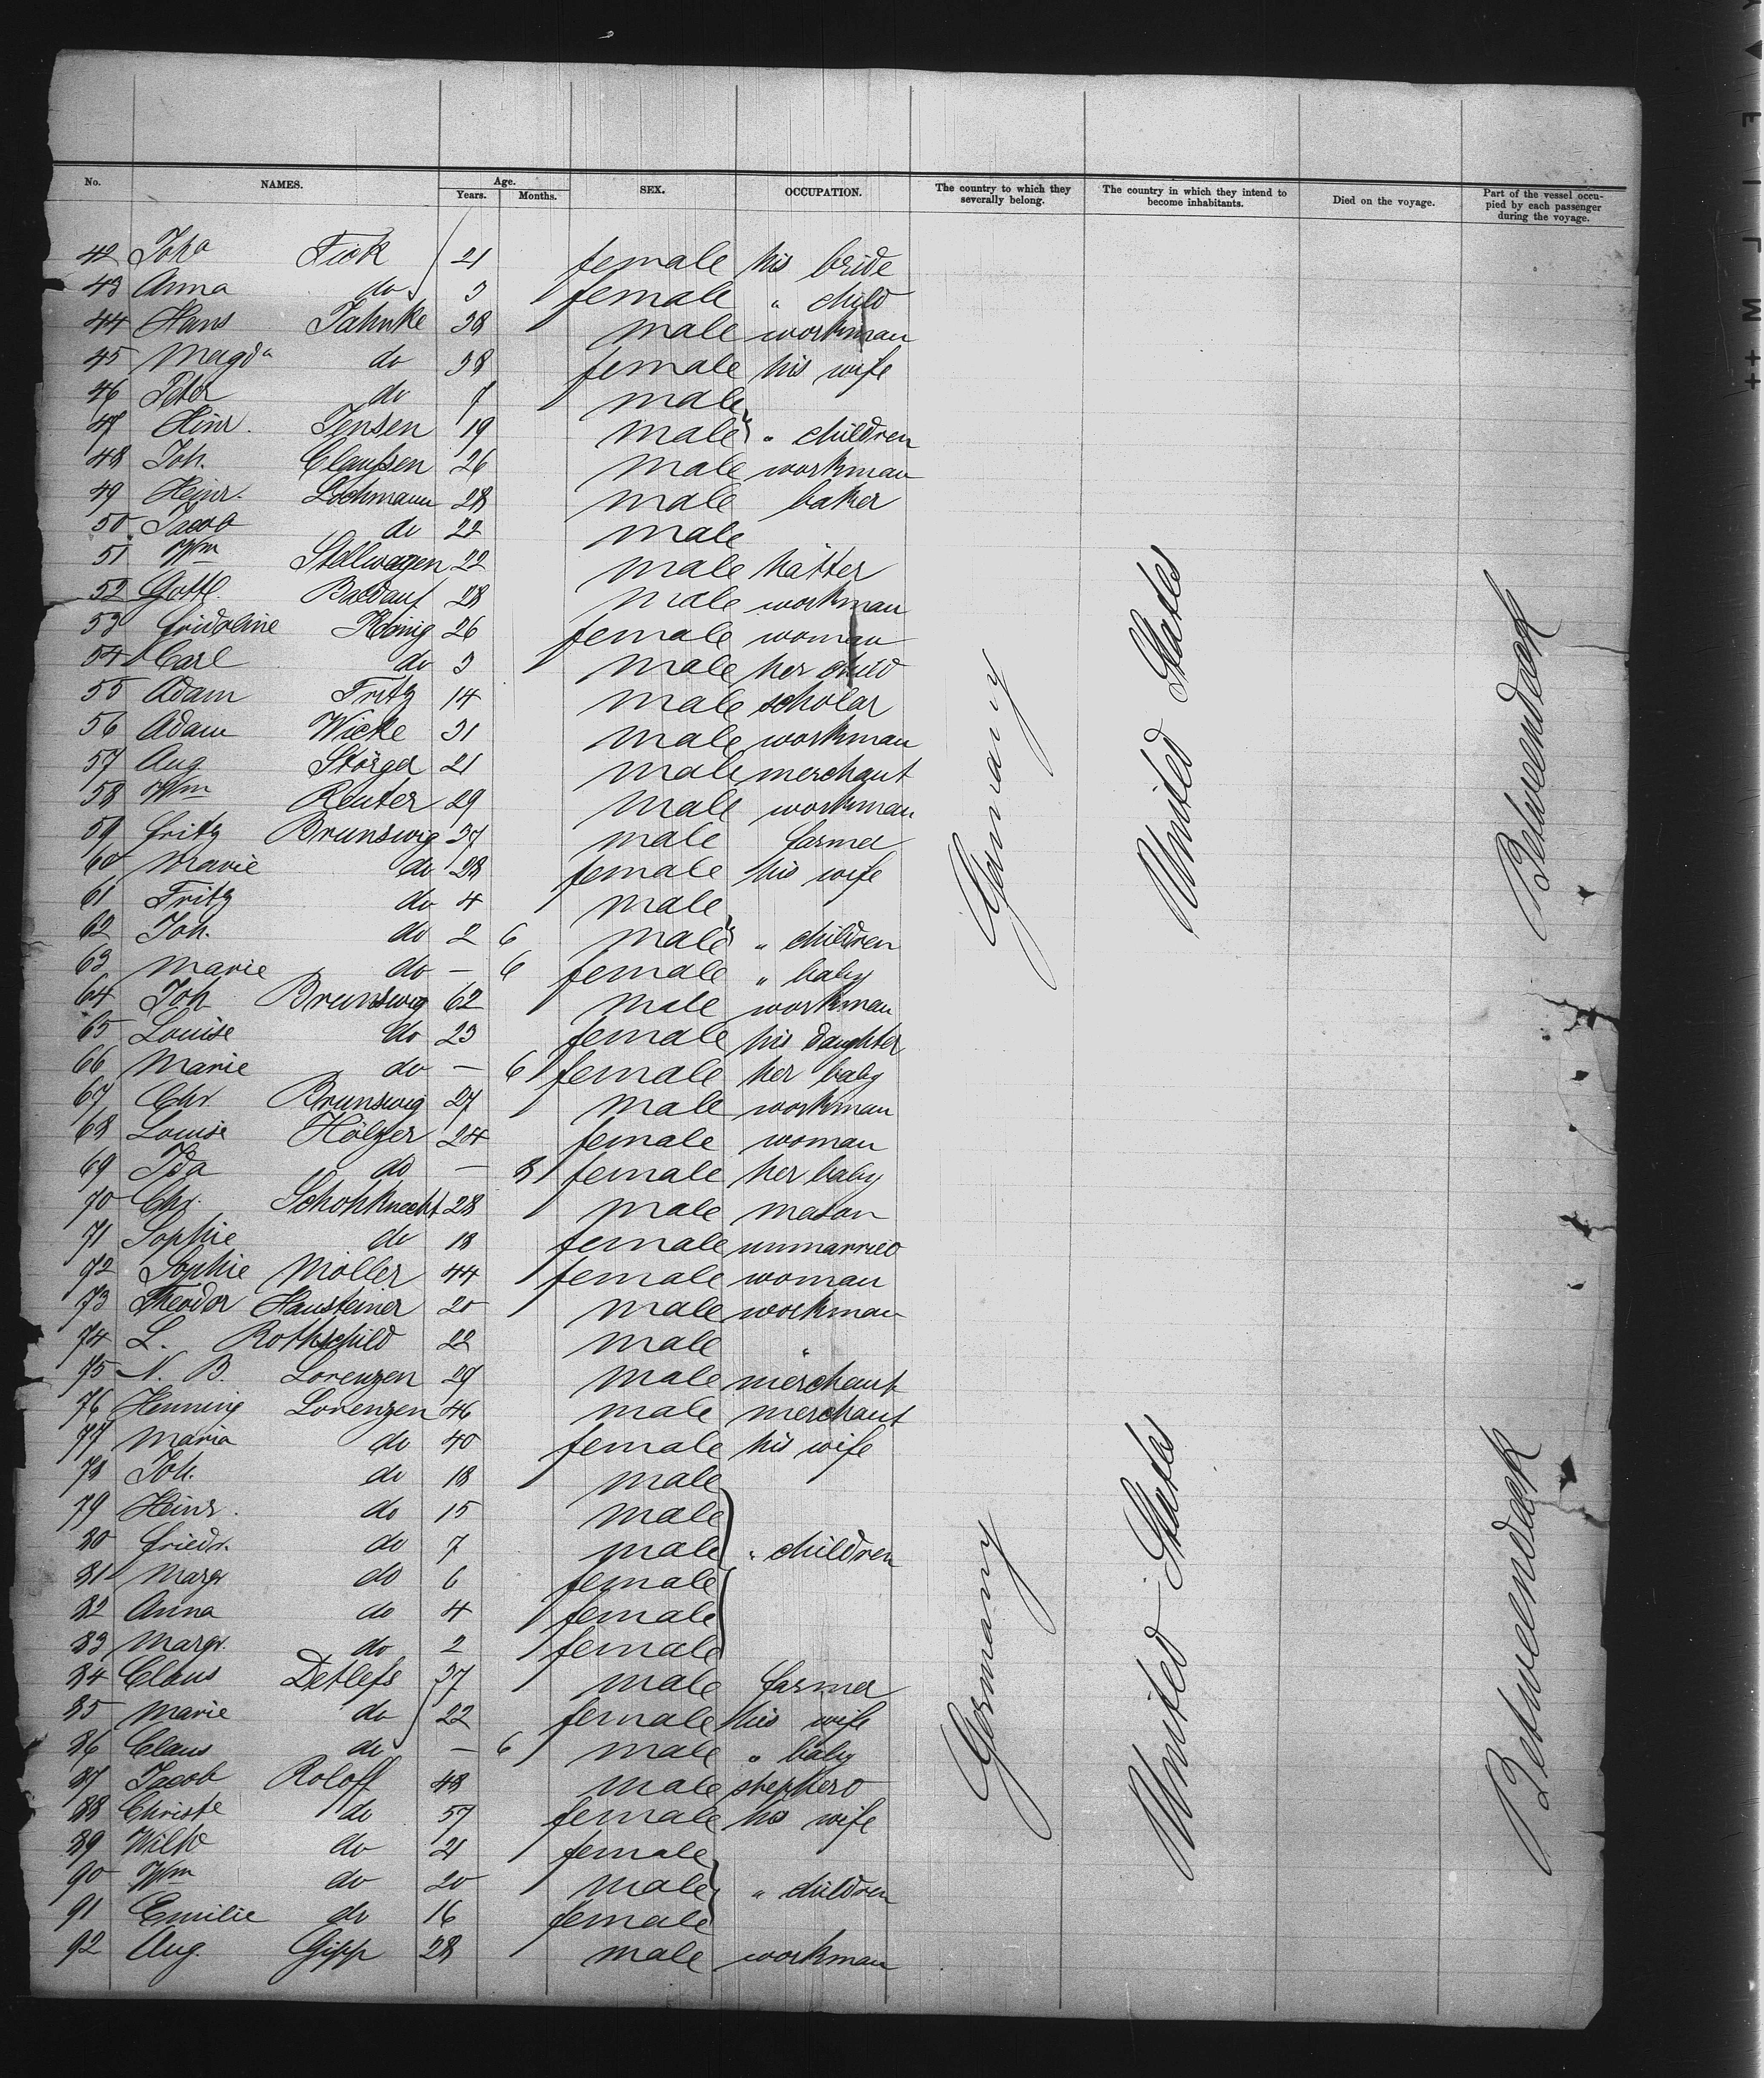 No. NAMES. Age. Years. Months. SEX. OCCUPATION. The country to which they severally belong. The country in which they intend to become inhabitants. Died on the voyage. Part of the vessel occupied by each passenger during the voyage.
42 Joha Fick 21 female his bride
43 Anna do 3 female " child
44 Hans Jahnke 38 male workman
45 Magda do 38 female his wife
46 Peter do 7 male
47 Hinr. Jensen 19 male " children
48 Joh. Claußen 26 male workman
49 Heinr. Lochmann 28 male baker
50 Jacob do 22 male
51 Wm Stellwagen 22 male hatter
52 Gottl. Baldauf 28 male workman
53 Fridoline König 26 female woman
54 Carl do 3 male her child
55 Adam Fritz 14 male scholar
56 Adam Wicke 31 male workman
57 Aug Störger 21 male merchant
58 Wm Reuter 29 male workman
59 Fritz Brunswig 37 male farmer
60 Marie do 28 female his wife
61 Fritz do 4 male
62 Joh. do 2 6 male " children
63 Marie do — 6 female " baby
64 Joh Brunswig 62 male workman
65 Louise do 23 female his daughter
66 Marie do — 6 female her baby
67 Chr Brunswig 27 male workman
68 Louise Hölzer 24 female woman
69 Ida do — 8 female her baby
70 Chr. Schohknecht 28 male mason
71 Sophie do 18 female unmarried
72 Sophie Möller 44 female woman
73 Theodor Hausteiner 20 male workman
74 L. Rothschild 22 male "
75 N. B. Lorenzen 29 male merchant
76 Henning Lorenzen 46 male merchant
77 Maria do 40 female his wife
78 Joh. do 18 male
79 Heinr. do 15 male
80 Friedr. do 7 male " children
81 Margr do 6 female
82 Anna do 4 female
83 Margr. do 2 female
84 Claus Detlefs 37 male farmer
85 Marie do 22 female his wife
86 Claus do — 6 male " baby
87 Jacob Roloff 48 male shepherd
88 Christe do 57 female his wife
89 Wilhe do 21 female
90 Wm do 20 male " children
91 Emilie do 16 female
92 Aug. Gipp 28 male workman
Germany
United States
Betweendeck
Germany
United States
Betweendeck